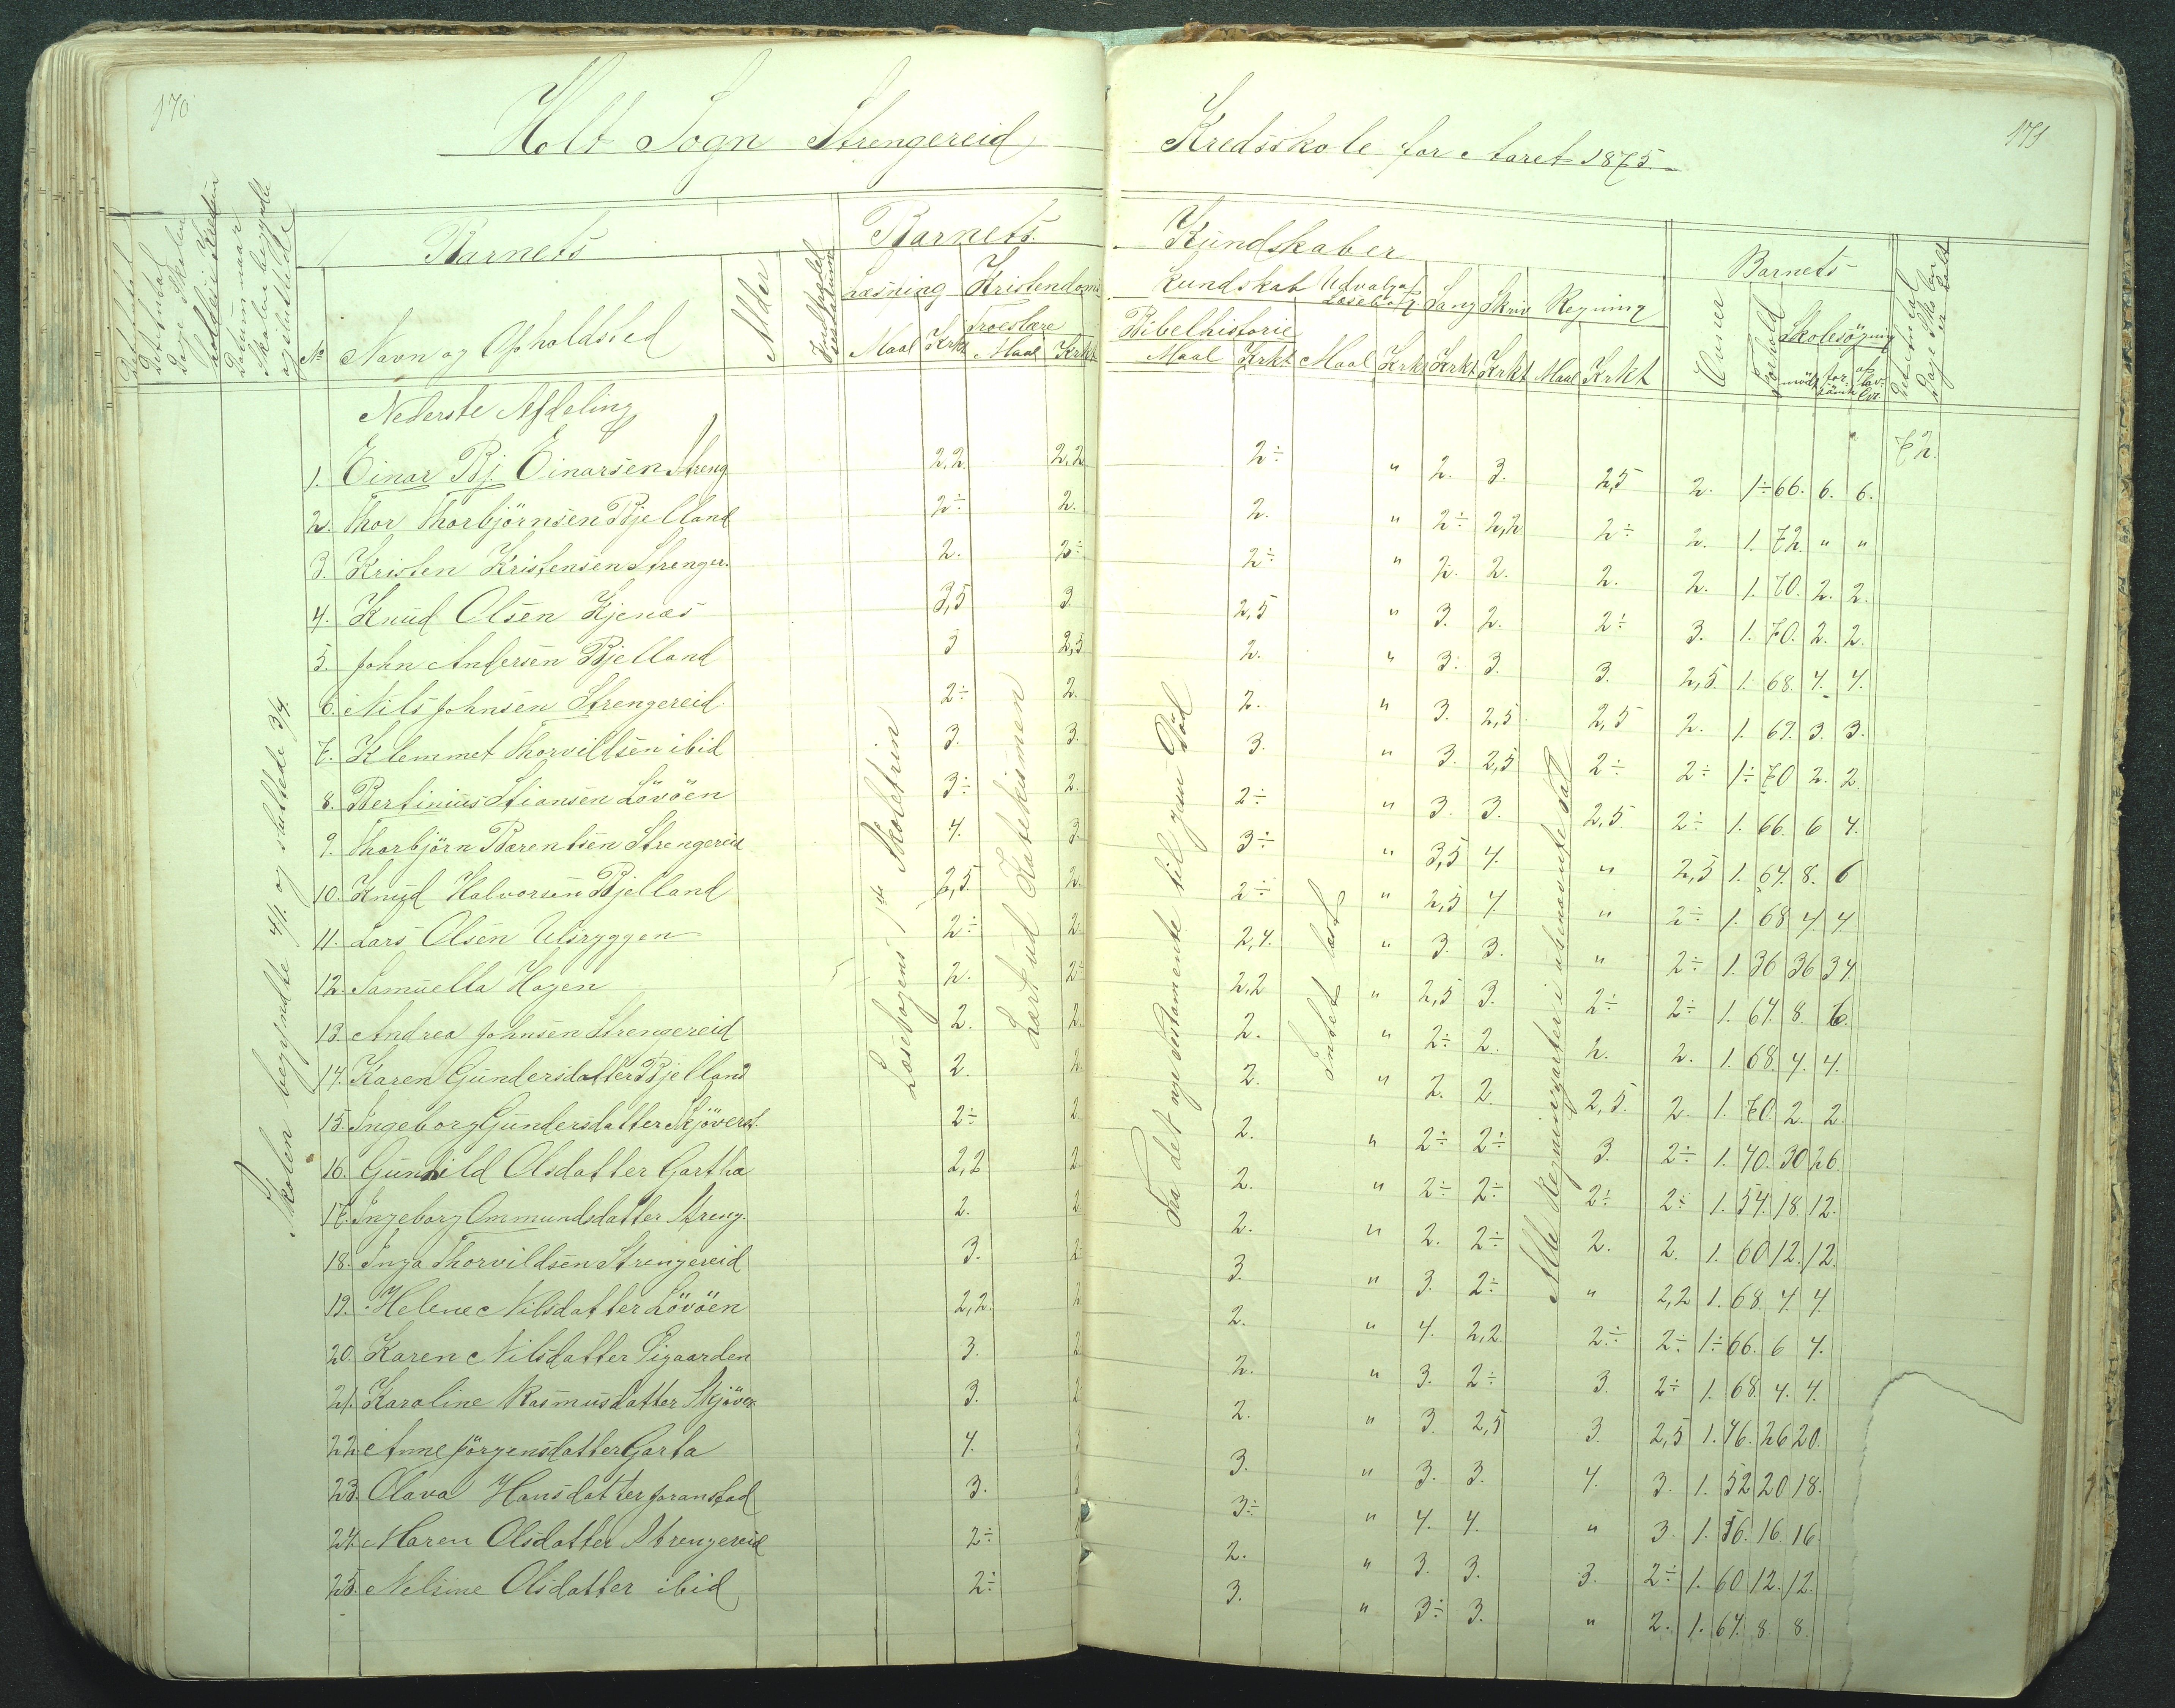 170
171
Holt Sogn Strengereid Kredsskole for Aaret 1875.
Barnets Barnets Kundskaber Barnets
Læsning Kristendoms kundskab Udvalg af Læsebog. Sang Skriv Regning
Troeslære Bibelhistorie Skolesögning
No Navn og Opholdsted Alder Maal Krkt Maal Krkt Maal Krkt Maal Krkt Krkt Krkt Maal Krkt Evner Forhold mödt forsömt
Nederste Afdeling
1. Einar Bj. Einarsen Streng 2,2. 2,2 2÷ " 2. 3. 2,5 2. 1÷ 66. 6. 6. 72.
2. Thor Thorbjörnsen Bjelland 2÷ 2. 2. " 2÷ 2,2 2÷ 2. 1. 72. " "
3. Kristen Kristensen Strenger. 2. 2÷ 2÷ " 2. 2. 2. 2. 1. 70. 2. 2.
4. Knud Olsen Kjenæs 3,5 3 2,5 " 3. 2. 2÷ 3. 1. 70. 2. 2.
5. John Andersen Bjelland 3 2,5 2. " 3. 3. 3. 2,5. 1. 68. 4. 4.
6. Nils Johnsen Strengereid 2÷ 2. 2. " 3. 2,5 2,5 2. 1. 69. 3. 3.
7. Klemmet Thorvildsen ibid 3. 3. 3. " 3. 2,5 2÷ 2÷ 1÷ 70 2. 2
8. Bertinius Stiansen Lövöen 3÷ 2. 2÷ " 3. 3. 2,5. 2÷ 1. 66. 6 4.
9. Thorbjörn Barentsen Strengereid 4. 3. 3÷ " 3,5 4. " 2,5 1. 64. 8. 6
10. Knud Halvorsen Bjelland 2,5. 2. 2÷ " 2,5 4. " 2÷ 1. 68 4 4
11. Lars Olsen Ulsryggen 2÷ 2. 2,4. " 3. 3. " 2÷ 1. 36 36 34.
12. Samuella Hagen 2. 2÷ 2,2 " 2,5 3. 2÷ 2÷ 1. 64. 8. 6.
13. Andrea Johnsen Strengereid 2. 2. 2. " 2÷ 2. 2. 2. 1. 68. 4. 4.
14. Karen Gundersdatter Bjelland 2. 2. 2. " 2. 2. 2,5. 2. 1. 70. 2. 2.
15. Ingeborg Gundersdatter Skjöverst. 2÷ 2. 2. " 2÷ 2÷ 3. 2÷ 1. 40. 30 26.
16. Gunhild Olsdatter Gartha 2,2 2. 2. " 2÷ 2÷ 2÷ 2÷ 1. 54. 18. 12.
17. Ingeborg Ommundsdatter Streng. 2. 2 2. " 2. 2÷ 2. 2. 1. 60 12. 12.
18. Inga Thorvildsen Strengereid 3. 2÷ 3. " 3. 2÷ " 2,2 1. 68. 4. 4.
19. Helene Nilsdatter Lövöen 2,2. 2 2. " 4. 2,2. 2÷ 2÷ 1÷ 66. 6 4.
20. Karen Nilsdatter Pigaarden 3. 2 2. " 3. 2÷ 3. 2÷ 1. 68. 4. 4.
21. Karoline Rasmusdatter Skjöver 3. 2 2. " 3. 2,5 3. 2,5 1. 46. 26 20.
22. Anne Jörgensdatter Garta 4. 3 3. " 3. 3. 4. 3. 1. 52 20 18.
23. Olava Hansdatter Joranstad 3. 3 3÷ " 4. 4. " 3. 1. 56. 16. 16.
24. Maren Olsdatter Strengereid 2÷ 2. " 3. 3. 3. 2÷ 1. 60 12. 12.
25. Nelsine Olsdatter ibid 2÷ 3. " 3÷ 3. " 2. 1. 64. 8. 8.
Skolen begyndte 4/1 og sluttede 3/4.
Læsebogens 1ste Skoletrin
Lært ud Katekismen
Fra det nye Testamente til Jesu Död
Intet læst
Alle Regningsarter i ubenævnte Tal